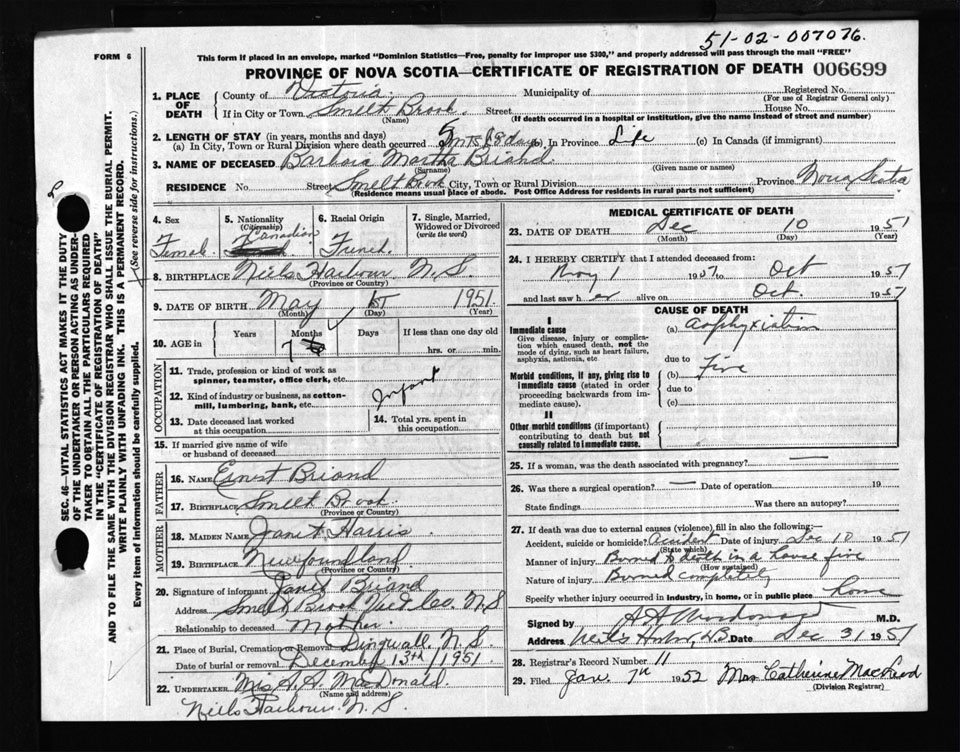 51-02-007076.
FORM 6
This form if placed in an envelope, marked "Dominion Statistics—Free, penalty for improper use $300," and properly addressed will pass through the mail "FREE"
PROVINCE OF NOVA SCOTIA—CERTIFICATE OF REGISTRATION OF DEATH 006699
1. PLACE OF DEATH
County of Victoria. Municipality of Registered No.
(For use of Registrar General only)
If in City or Town Smelt Brook. Street House No.
(Name) (If death occurred in a hospital or institution, give the name instead of street and number)
2. LENGTH OF STAY (in years, months and days)
(a) In City, Town or Rural Division where death occurred (b) In Province Life (c) In Canada (if immigrant)
3. NAME OF DECEASED Barbara Martha Briand.
(Surname) (Given name or names)
RESIDENCE No. Street Smelt Brook City, Town or Rural Division Province Nova Scotia
(Residence means usual place of abode. Post Office Address for residents in rural parts not sufficient)
4. Sex
Female
5. Nationality
(Citizenship)
Canadian
6. Racial Origin
French.
7. Single, Married, Widowed or Divorced
(write the word)
8. BIRTHPLACE Niel's Harbour N.S.
(Province or Country)
9. DATE OF BIRTH May 1st 1951
(Month) (Day) (Year)
10. AGE in
Years Months Days If less than one day old
7
hrs. or min.
OCCUPATION
11. Trade, profession or kind of work as spinner, teamster, office clerk, etc.
12. Kind of industry or business, as cotton-mill, lumbering, bank, etc.
Infant
13. Date deceased last worked at this occupation
14. Total yrs. spent in this occupation
15. If married give name of wife or husband of deceased
FATHER
16. NAME Ernest Briand
17. BIRTHPLACE Smelt Brook.
(Province or Country)
MOTHER
18. MAIDEN NAME Janet Harris
19. BIRTHPLACE Newfoundland
(Province or Country)
20. Signature of informant Janet Briand
Address Smelt Brook Vict. Co. N.S
Relationship to deceased Mother.
21. Place of Burial, Cremation or Removal Dingwall. N.S.
Date of burial or removal December 13th 1951.
22. UNDERTAKER Mrs A. A. MacDonald.
(Name and address)
Niels Harbour. N.S.
MEDICAL CERTIFICATE OF DEATH
23. DATE OF DEATH Dec 10 1951
(Month) (Day) (Year)
24. I HEREBY CERTIFY that I attended deceased from:
May 1 1951 to Oct 1951
and last saw her alive on Oct. 1951
CAUSE OF DEATH
I
Immediate cause
Give disease, injury or complication which caused death, not the mode of dying, such as heart failure, asphyxia, asthenia, etc
(a) asphyxiation
due to
Morbid conditions, if any, giving rise to immediate cause (stated in order proceeding backwards from immediate cause).
(b) Fire
due to
(c)
II
Other morbid conditions (if important) contributing to death but not causally related to immediate cause.
25. If a woman, was the death associated with pregnancy? —
26. Was there a surgical operation? — Date of operation 19
State findings Was there an autopsy?
27. If death was due to external causes (violence), fill in also the following:
Accident, suicide or homicide? Accident Date of injury Dec 10 1951
(State which)
Manner of injury Burned to death in a house fire
(How sustained)
Nature of injury Burned completely
Specify whether injury occurred in industry, in home, or in public place home
Signed by A A Macdonald M.D.
Address Neils Harbor, N.S. Date Dec 31 1951
28. Registrar's Record Number 11
29. Filed Jan. 7th 1952 Mrs Catherine MacLeod
(Division Registrar)
SEC. 46—VITAL STATISTICS ACT MAKES IT THE DUTY
OF THE UNDERTAKER OR PERSON ACTING AS UNDERTAKER TO OBTAIN ALL THE PARTICULARS REQUIRED
IN THE "CERTIFICATE OF REGISTRATION OF DEATH"
AND TO FILE THE SAME WITH THE DIVISION REGISTRAR WHO SHALL ISSUE THE BURIAL PERMIT.
WRITE PLAINLY WITH UNFADING INK. THIS IS A PERMANENT RECORD.
Every item of information should be carefully supplied. (See reverse side for instructions.)